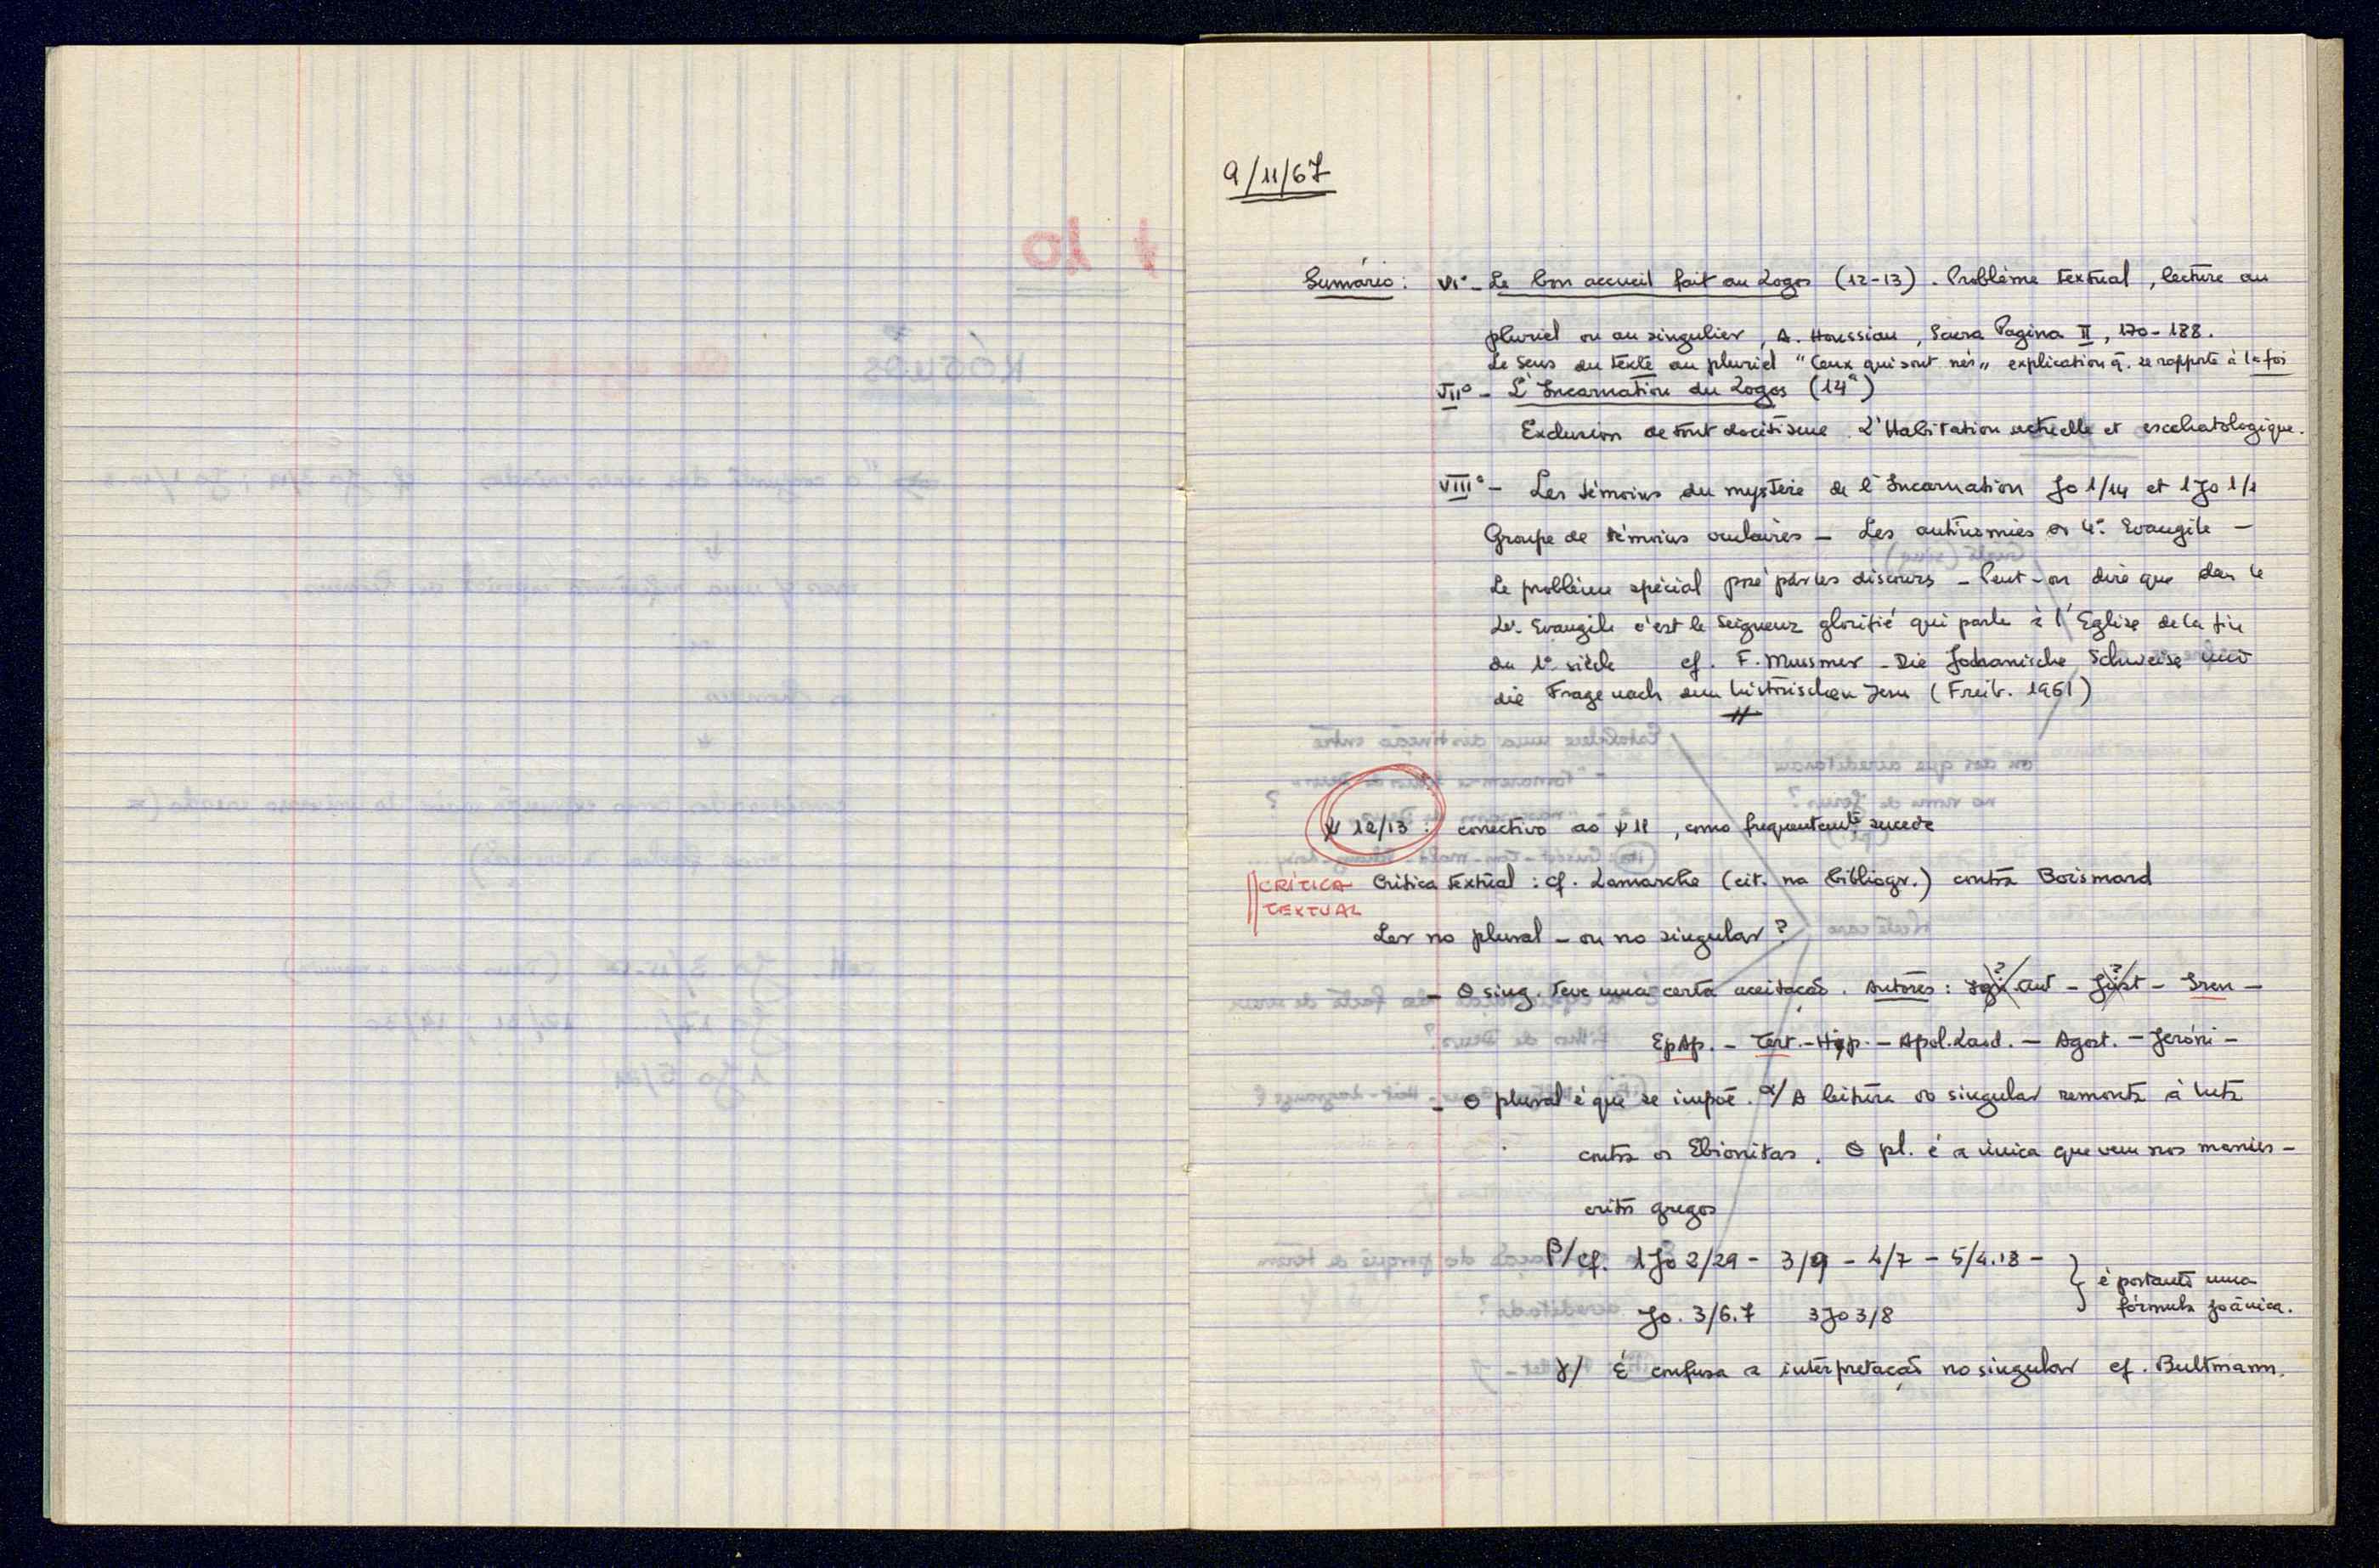 9/11/67
Sumário: VIº - Le bon accueil fait au Logos (12-13). Problème textual, lecture au
pluriel ou au singulier, A. Houssiau, Sacra Pagina II, 170-188.
Le sens du texte au pluriel "Ceux qui sont nés" explication q. se rapporte à la foi
VIIº - L'Incarnation du Logos (14ª)
Exclusion de tout docétisme. L'Habitation actuelle et eschatologique.
VIIIº - Les témoins du mystère de l'Incarnation Jo 1/14 et 1Jo 1/1
Groupe de témoins oculaires - Les antinomies 4º. Evangile -
Le problème spécial posé par les discours - Peut-on dire que le
Evangile c'est le Seigneur glorifié qui parle à l'Eglise de la fin
du 1º siècle cf. F. Mussner - Die Johanische Schweise und
die Frage nach dem historischen Jesu (Freib. 1961)
℣ 12/13 : correctivo ao ℣ 11, como frequentemte sucede
CRÍTICA
TEXTUAL
Critica textual : cf. Lamarche (cit. na bibliogr.) contra Boismard
Ler no plural - ou no singular?
- O sing. teve uma certa aceitação. Autores: Ign. Ant - Just - Iren -
EpAp. - Tert. - Hip. - Apol. Laod. - Agost. - Jeróni -
- O plural é que se impõe. α/ A leitura do singular remonta à luta
contra os Ebionitas. O pl. é a única que vem nos manus-
critos gregos
β/ cf. 1Jo 2/29 - 3/9 - 4/7 - 5/4.18 -
Jo. 3/6.7 3Jo 3/8
} é portanto uma
fórmula joânica.
γ/ É confusa a interpretação no singular cf. Bultmann.